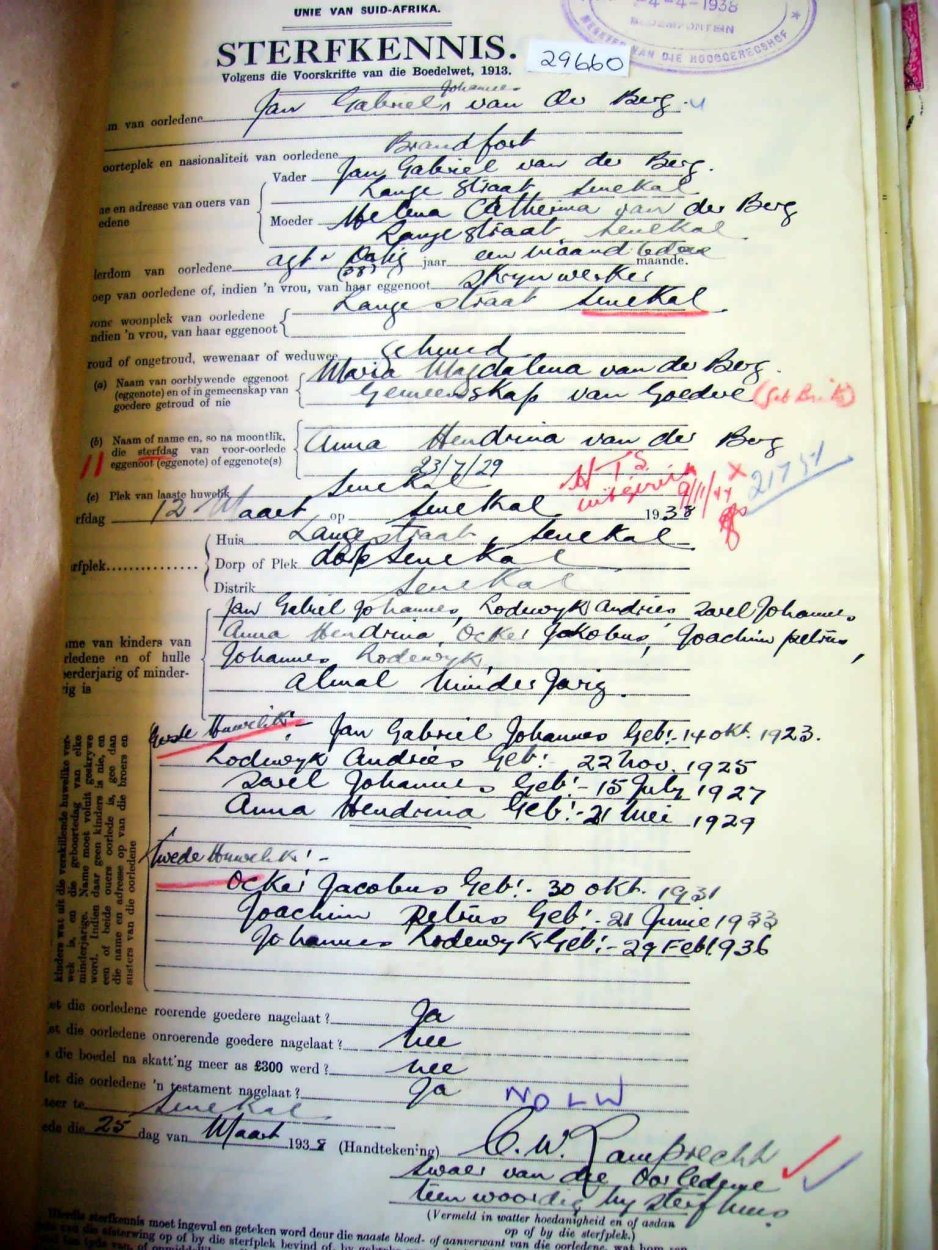 UNIE VAN SUID-AFRIKA.
-4-4-1938
BLOEMFONTEIN
VAN DIE HOOGGEREGSHOF
STERFKENNIS.
29660
Volgens die Voorskrifte van die Boedelwet, 1913.
Johannes
m van oorledene Jan Gabriel van der Berg
oorteplek en nasionaliteit van oorledene Brandfort
Vader Jan Gabriel van der Berg.
ne en adresse van ouers van Lange Straat Senekal
edene Moeder Helena Catherina van der Berg
Lange straat Senekal
lerdom van oorledene agt & Dertig (38) jaar een maand maande.
oep van oorledene of, indien 'n vrou, van haar eggenoot Skrynwerker
wone woonplek van oorledene Lange straat Senekal
ndien 'n vrou, van haar eggenoot
roud of ongetroud, wewenaar of weduwee gehuud
(a) Naam van oorblywende eggenoot Maria Magdalena van der Berg.
(eggenote) en of in gemeenskap van Gemeenskap van Goedere (geb Brits)
goedere getroud of nie
(b) Naam of name en, so na moontlik, Anna Hendrina van der Berg
die sterfdag van voor-oorlede
11 eggenoot (eggenote) of eggenote(s) 23/7/29
(c) Plek van laaste huwelik Senekal
H.T.S. 9/1/44 x 21751
rfdag 12 Maart op Senekal 1938
Huis Lange straat, Senekal
rfplek Dorp of Plek dorp Senekal
Distrik Senekal
Jan Gabriel Johannes, Lodewyk Andries, Sarel Johannes
ame van kinders van Anna Hendrina, Ocker Jakobus, Joachim petrus,
rledene en of hulle Johannes Lodewyk,
eerderjarig of minder-
rig is Almal Minder Jarig.
kinders wat uit die verskillende huwelike ver-
wek is, en die geboortedag van elke
minderjarige. Name moet voluit geskrywe
word. Indien daar geen kinders is nie, en
een of beide ouers oorlede is, gee dan
die name en adresse op van die broers en
susters van die oorledene
Eerste Huwelik:- Jan Gabriel Johannes Geb:- 14 Okt. 1923.
Lodewyk Andries Geb:- 22 Nov. 1925
Sarel Johannes Geb:- 15 July 1927
Anna Hendrina Geb:- 21 Mei 1929
Twede Huwelik:-
Ocker Jacobus Geb:- 30 Okt. 1931
Joachim Petrus Geb:- 21 June 1933
Johannes Lodewyk Geb:- 29 Feb. 1936
et die oorledene roerende goedere nagelaat? Ja
et die oorledene onroerende goedere nagelaat? nee
s die boedel na skatt'ng meer as £300 werd? nee
Het die oorledene 'n testament nagelaat? Ja NOLW
teer te Senekal
ede die 25 dag van Maart 1938 (Handtekening) C. W. Lamprecht
swaer van die Oorledene
teenwoordig by sterfhuis
(Vermeld in watter hoedanigheid en of asdan
op of by die sterfplek.)
Hierdie sterfkennis moet ingevul en geteken word deur die naaste bloed- of aanverwant van die oorledene, wat